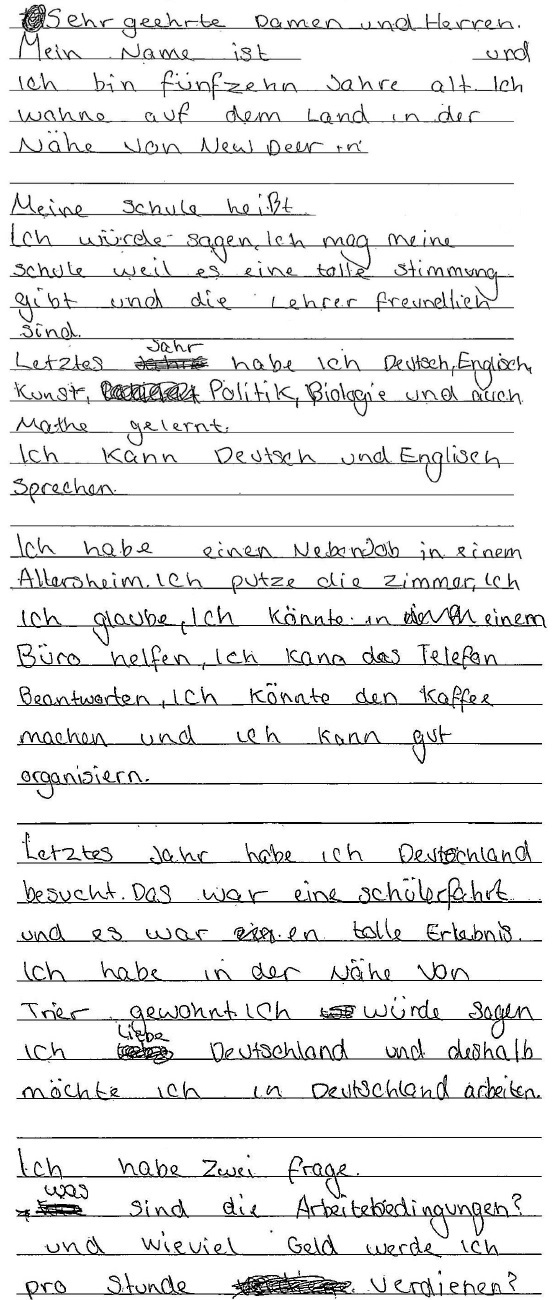 Sehr geehrte Damen und Herren.
Mein Name ist und
ich bin fünfzehn Jahre alt. Ich
wohne auf dem Land in der
Nähe von New Deer in
Meine Schule heißt
Ich würde sagen, Ich mag meine
schule weil es eine tolle stimmung
gibt und die Lehrer freundlich
sind.
Letztes Jahr habe ich Deutsch, Englisch,
Kunst, Politik, Biologie und auch
Mathe gelernt.
Ich kann Deutsch und Englisch
sprechen.
Ich habe einen NebenJob in einem
Altersheim. Ich putze die zimmer, Ich
ich glaube, Ich könnte in einem
Büro helfen, Ich kann das Telefon
Beantworten, Ich könnte den Kaffee
machen und ich kann gut
organisiern.
Letztes Jahr habe ich Deutschland
besucht. Das war eine schülerfahrt
und es war en tolle Erlebnis.
Ich habe in der Nähe von
Trier gewohnt. Ich würde sagen
ich Liebe Deutschland und deshalb
möchte ich in Deutschland arbeiten.
Ich habe zwei frage.
was sind die Arbeitebedingungen?
und wieviel Geld werde ich
pro Stunde verdienen?